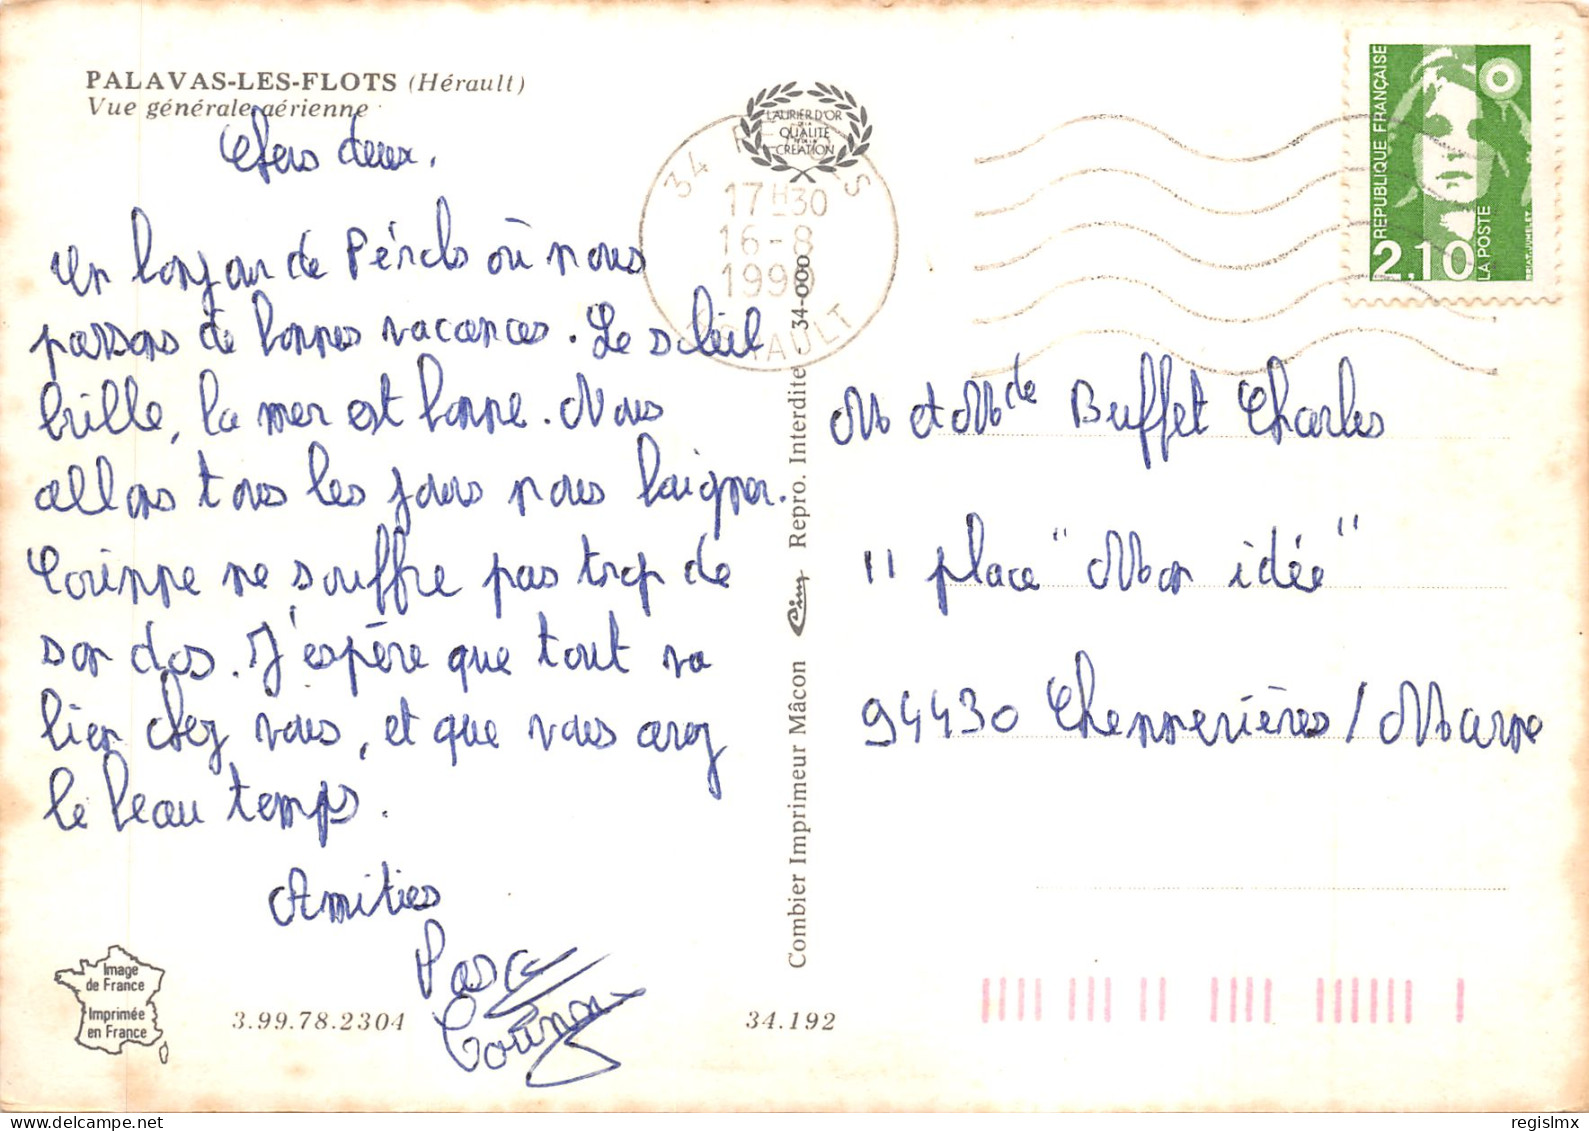 PALAVAS-LES-FLOTS (Hérault)
Vue générale aérienne
Chers deux,
Un bonjour de Pérols où nous
passons de bonnes vacances. Le soleil
brille, la mer est bonne. Nous
allons tous les jours nous baigner.
Corinne ne souffre pas trop de
son dos. J'espère que tout va
bien chez vous, et que vous avez
le beau temps.
Amitiés
Pascal
Corinne
Image
de France
Imprimée
en France
3.99.78.2304
34.192
LAURIER D'OR
DE LA
QUALITÉ
CRÉATION
34 PEROLS
17H30
16-8
1990
HERAULT
Combier Imprimeur Mâcon Cim Repro. Interdite 34-000
RÉPUBLIQUE FRANÇAISE
2,10
LA POSTE
BRIAT-JUMELET
M et Mde Buffet Charles
11 place "Mon idée"
94430 Chennevières/Marne
regislmx